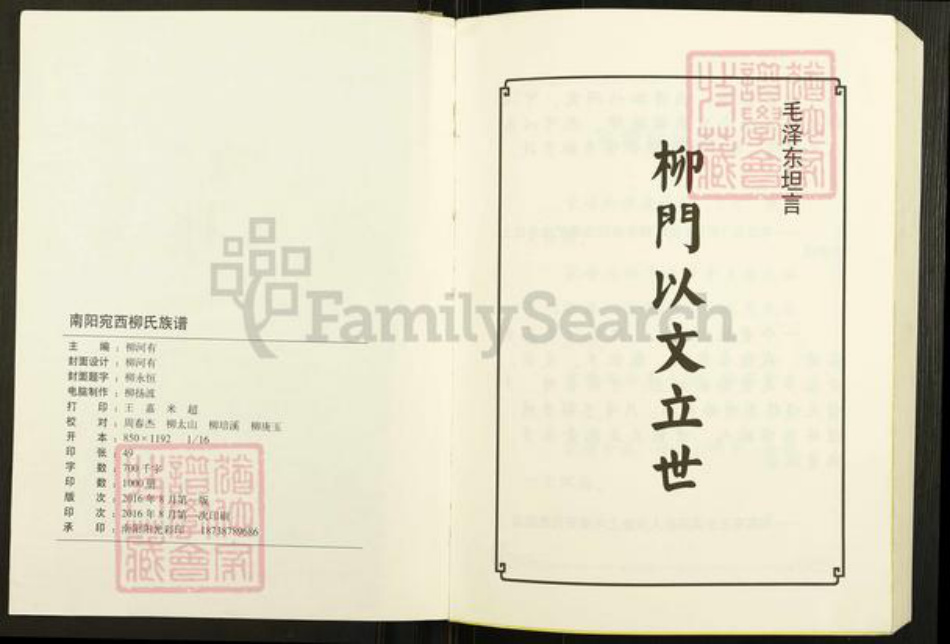 南阳宛西柳氏族谱
主 编：柳河有
封面设计：柳河有
封面题字：柳永恒
电脑制作：柳扬波
打 印：王 嘉 米 超
校 对：周春杰 柳太山 柳培溪 柳庚玉
开 本：850×1192 1/16
印 张：49
字 数：700千字
印 数：1000册
版 次：2016年8月第一版
印 次：2016年8月第一次印刷
承 印：南阳阳光彩印 18738789686
毛泽东坦言
柳門以文立世
FamilySearch